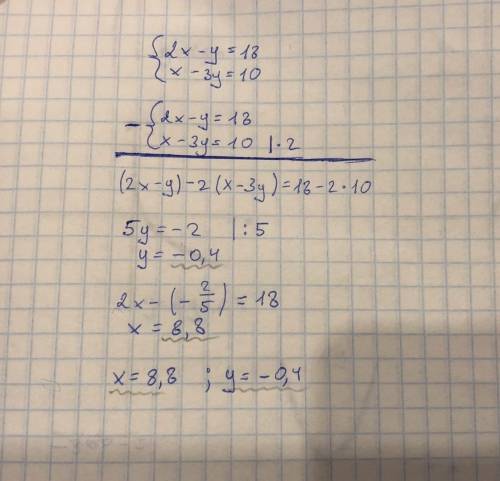 {2x-y=18
x-3y=10
-{2x-y=18
x-3y=10 |·2
(2x-y)-2(x-3y)=18-2·10
5y=-2 |:5
y=-0,4
2x-(-2/5)=18
x=8,8
x=8,8 ; y=-0,4